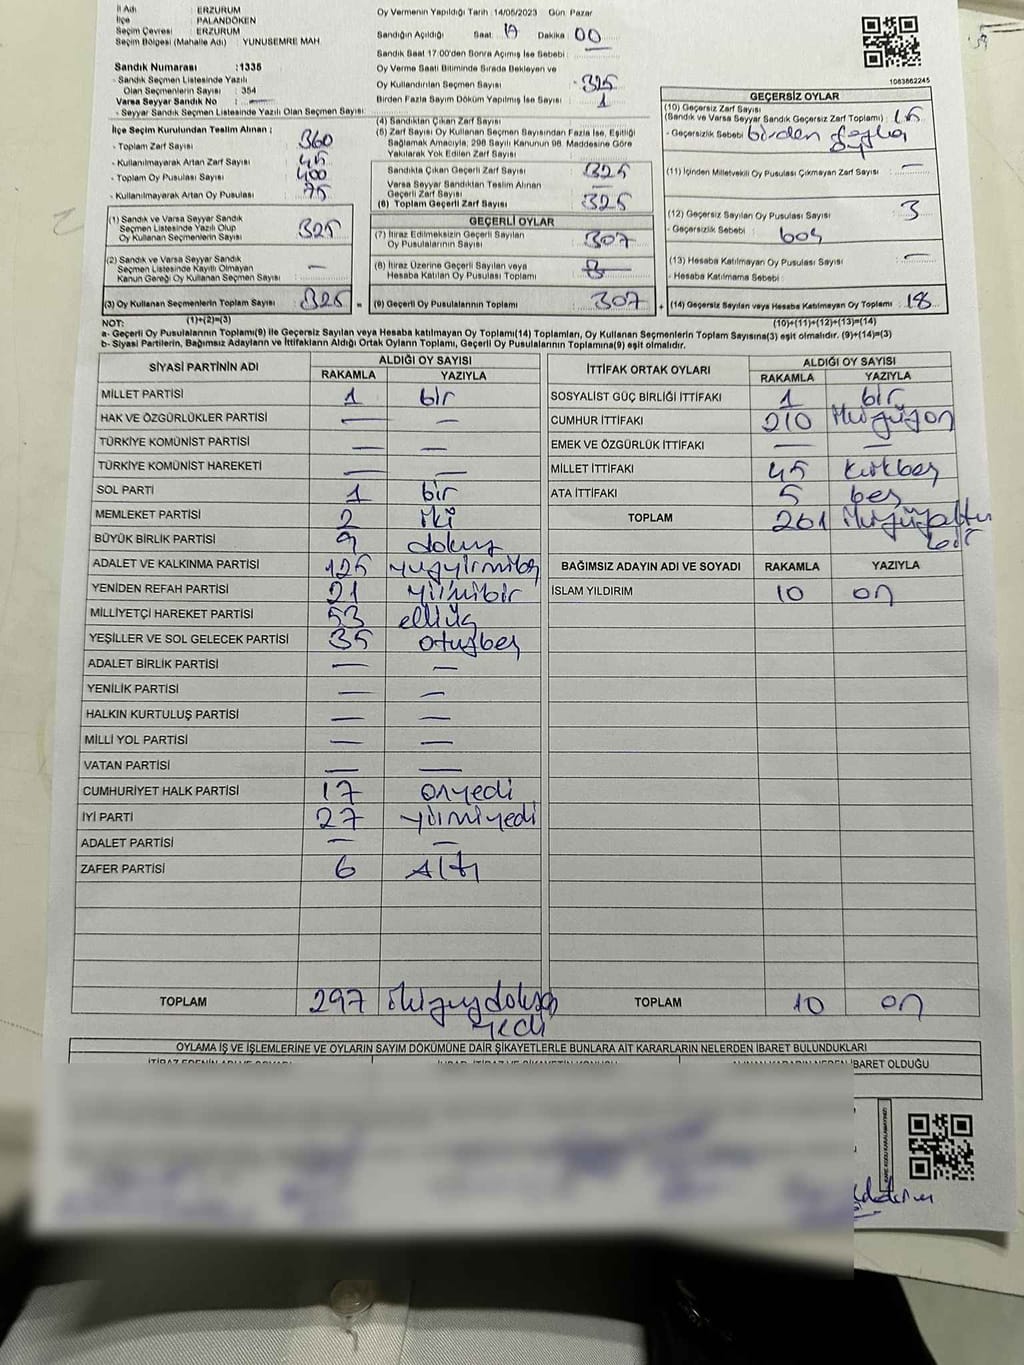 İl Adı : ERZURUM
İlçe : PALANDÖKEN
Seçim Çevresi : ERZURUM
Seçim Bölgesi (Mahalle Adı) : YUNUSEMRE MAH.
Sandık Numarası :1335
- Sandık Seçmen Listesinde Yazılı
Olan Seçmenlerin Sayısı : 354
Varsa Seyyar Sandık No : —
- Seyyar Sandık Seçmen Listesinde Yazılı Olan Seçmen Sayısı
İlçe Seçim Kurulundan Teslim Alınan ;
- Toplam Zarf Sayısı : 360
- Kullanılmayarak Artan Zarf Sayısı : 45
- Toplam Oy Pusulası Sayısı : 400
- Kullanılmayarak Artan Oy Pusulası : 75
(1) Sandık ve Varsa Seyyar Sandık
Seçmen Listesinde Yazılı Olup
Oy Kullanan Seçmenlerin Sayısı : 325
(2) Sandık ve Varsa Seyyar Sandık
Seçmen Listesinde Kayıtlı Olmayan
Kanun Gereği Oy Kullanan Seçmen Sayısı : —
(3) Oy Kullanan Seçmenlerin Toplam Sayısı : 325
(1)+(2)=(3)
Oy Vermenin Yapıldığı Tarih : 14/05/2023 Gün: Pazar
Sandığın Açıldığı Saat: 17 Dakika: 00
Sandık Saat 17:00'den Sonra Açılmış İse Sebebi : —
Oy Verme Saati Bitiminde Sırada Bekleyen ve
Oy Kullandırılan Seçmen Sayısı : 325
Birden Fazla Sayım Döküm Yapılmış İse Sayısı : 1
(4) Sandıktan Çıkan Zarf Sayısı
(5) Zarf Sayısı Oy Kullanan Seçmen Sayısından Fazla İse, Eşitliği
Sağlamak Amacıyla, 298 Sayılı Kanunun 98. Maddesine Göre
Yakılarak Yok Edilen Zarf Sayısı :
Sandıkta Çıkan Geçerli Zarf Sayısı : 325
Varsa Seyyar Sandıktan Teslim Alınan
Geçerli Zarf Sayısı : —
(6) Toplam Geçerli Zarf Sayısı : 325
GEÇERLİ OYLAR
(7) İtiraz Edilmeksizin Geçerli Sayılan
Oy Pusulalarının Sayısı : 307
(8) İtiraz Üzerine Geçerli Sayılan veya
Hesaba Katılan Oy Pusulaları Toplamı :
(9) Geçerli Oy Pusulalarının Toplamı : 307
1083862245
GEÇERSİZ OYLAR
(10) Geçersiz Zarf Sayısı
(Sandık ve Varsa Seyyar Sandık Geçersiz Zarf Toplamı) : 15
- Geçersizlik Sebebi : birden fazla
oy
(11) İçinden Milletvekili Oy Pusulası Çıkmayan Zarf Sayısı : —
(12) Geçersiz Sayılan Oy Pusulası Sayısı : 3
- Geçersizlik Sebebi : boş
(13) Hesaba Katılmayan Oy Pusulası Sayısı : —
- Hesaba Katılmama Sebebi :
(14) Geçersiz Sayılan veya Hesaba Katılmayan Oy Toplamı : 18
(10)+(11)+(12)+(13)=(14)
NOT:
a- Geçerli Oy Pusulalarının Toplamı(9) ile Geçersiz Sayılan veya Hesaba katılmayan Oy Toplamı(14) Toplamları, Oy Kullanan Seçmenlerin Toplam Sayısına(3) eşit olmalıdır. (9)+(14)=(3)
b- Siyasi Partilerin, Bağımsız Adayların ve İttifakların Aldığı Ortak Oyların Toplamı, Geçerli Oy Pusulalarının Toplamına(9) eşit olmalıdır.
SİYASİ PARTİNİN ADI ALDIĞI OY SAYISI
RAKAMLA YAZIYLA
MİLLET PARTİSİ 1 bir
HAK VE ÖZGÜRLÜKLER PARTİSİ — —
TÜRKİYE KOMÜNİST PARTİSİ — —
TÜRKİYE KOMÜNİST HAREKETİ — —
SOL PARTİ 1 bir
MEMLEKET PARTİSİ 2 iki
BÜYÜK BİRLİK PARTİSİ 9 dokuz
ADALET VE KALKINMA PARTİSİ 125 yüzyirmibeş
YENİDEN REFAH PARTİSİ 21 yirmibir
MİLLİYETÇİ HAREKET PARTİSİ 53 elliüç
YEŞİLLER VE SOL GELECEK PARTİSİ 35 otuzbeş
ADALET BİRLİK PARTİSİ — —
YENİLİK PARTİSİ — —
HALKIN KURTULUŞ PARTİSİ — —
MİLLİ YOL PARTİSİ — —
VATAN PARTİSİ — —
CUMHURİYET HALK PARTİSİ 17 onyedi
İYİ PARTİ 27 yirmiyedi
ADALET PARTİSİ — —
ZAFER PARTİSİ 6 Altı
TOPLAM 297 ikiyüzdoksan
yedi
İTTİFAK ORTAK OYLARI ALDIĞI OY SAYISI
RAKAMLA YAZIYLA
SOSYALİST GÜÇ BİRLİĞİ İTTİFAKI 1 bir
CUMHUR İTTİFAKI 210 ikiyüzon
EMEK VE ÖZGÜRLÜK İTTİFAKI — —
MİLLET İTTİFAKI 45 kırkbeş
ATA İTTİFAKI 5 beş
TOPLAM 261 ikiyüzaltmış
bir
BAĞIMSIZ ADAYIN ADI VE SOYADI RAKAMLA YAZIYLA
İSLAM YILDIRIM 10 on
TOPLAM 10 on
OYLAMA İŞ VE İŞLEMLERİNE VE OYLARIN SAYIM DÖKÜMÜNE DAİR ŞİKAYETLERLE BUNLARA AİT KARARLARIN NELERDEN İBARET BULUNDUKLARI
İBARET OLDUĞU